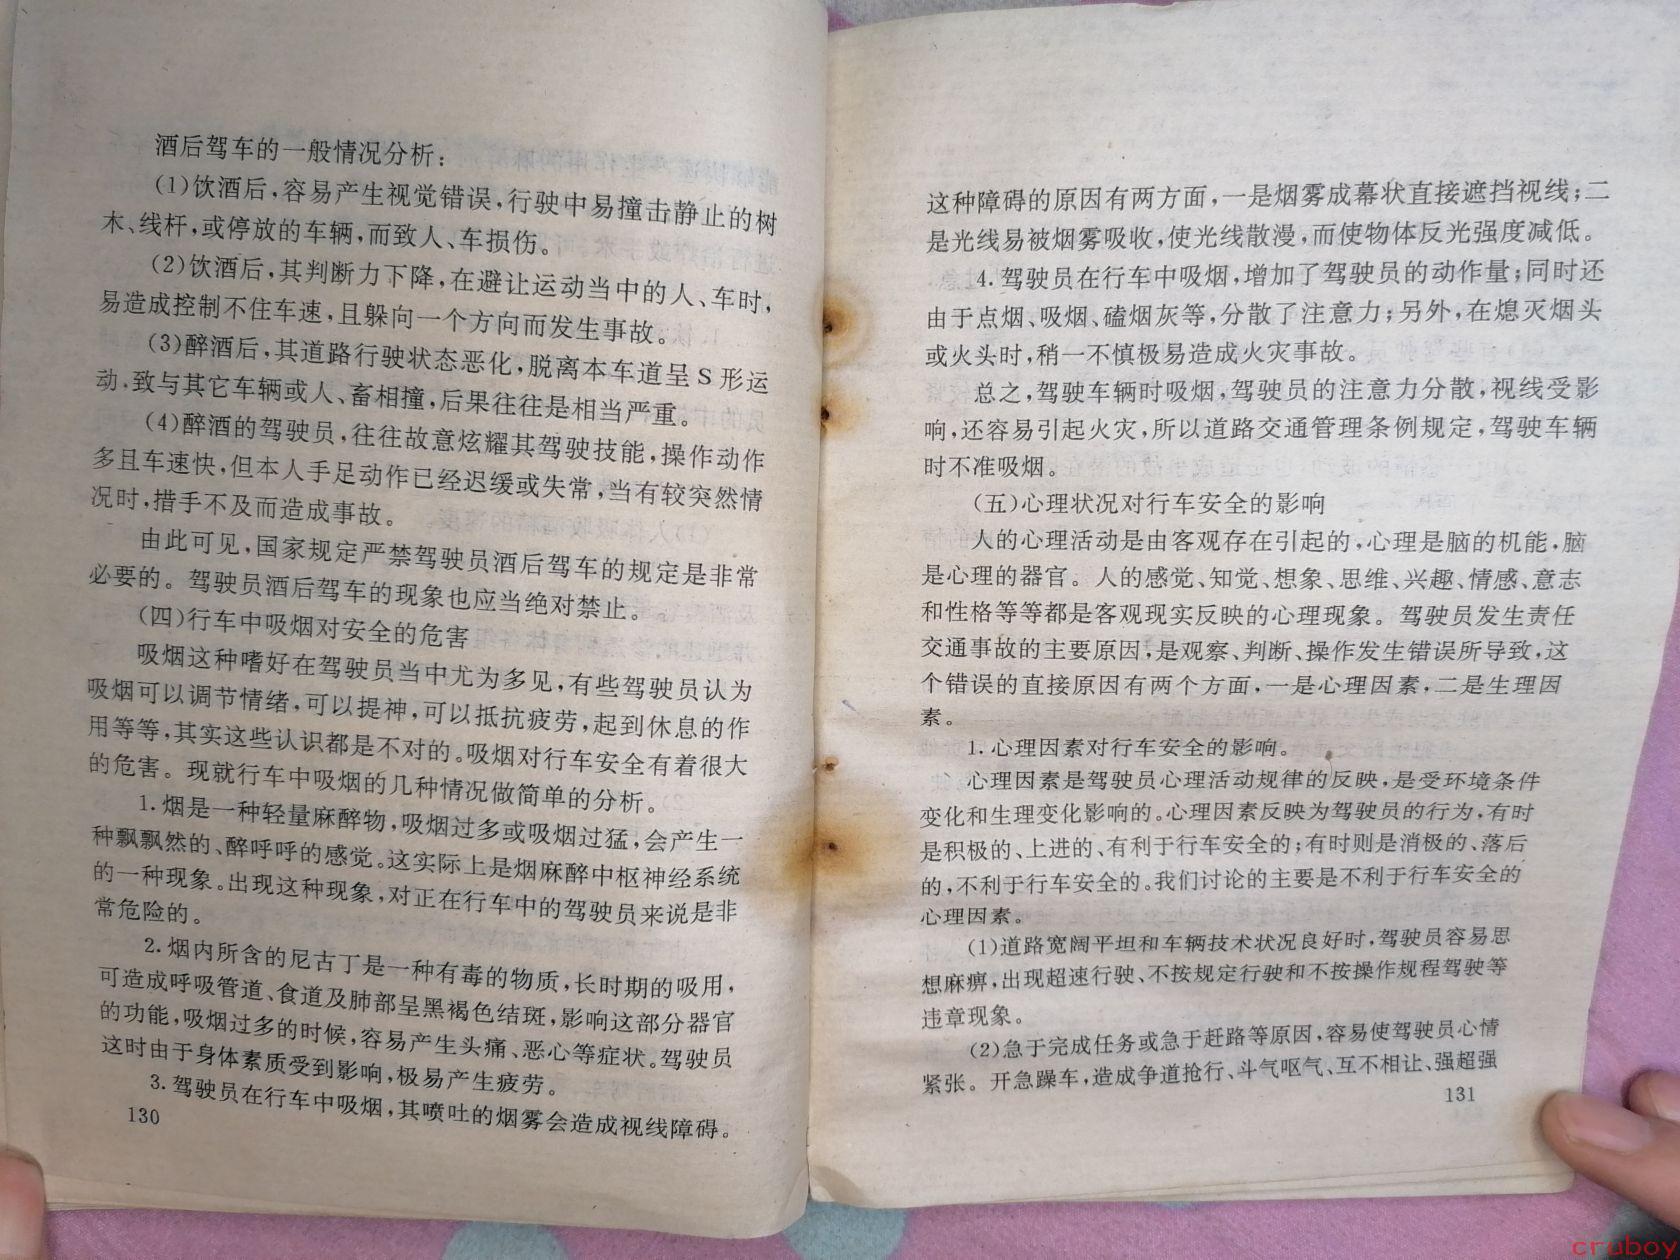 酒后驾车的一般情况分析：
(1)饮酒后，容易产生视觉错误，行驶中易撞击静止的树
木、线杆，或停放的车辆，而致人、车损伤。
(2)饮酒后，其判断力下降，在避让运动当中的人、车时，
易造成控制不住车速，且躲向一个方向而发生事故。
(3)醉酒后，其道路行驶状态恶化，脱离本车道呈S形运
动，致与其它车辆或人、畜相撞，后果往往是相当严重。
(4)醉酒的驾驶员，往往故意炫耀其驾驶技能，操作动作
多且车速快，但本人手足动作已经迟缓或失常，当有较突然情
况时，措手不及而造成事故。
由此可见，国家规定严禁驾驶员酒后驾车的规定是非常
必要的。驾驶员酒后驾车的现象也应当绝对禁止。
(四)行车中吸烟对安全的危害
吸烟这种嗜好在驾驶员当中尤为多见，有些驾驶员认为
吸烟可以调节情绪，可以提神，可以抵抗疲劳，起到休息的作
用等等，其实这些认识都是不对的。吸烟对行车安全有着很大
的危害。现就行车中吸烟的几种情况做简单的分析。
1.烟是一种轻量麻醉物，吸烟过多或吸烟过猛，会产生一
种飘飘然的、醉呼呼的感觉。这实际上是烟麻醉中枢神经系统
的一种现象。出现这种现象，对正在行车中的驾驶员来说是非
常危险的。
2.烟内所含的尼古丁是一种有毒的物质，长时期的吸用，
可造成呼吸管道、食道及肺部呈黑褐色结斑，影响这部分器官
的功能，吸烟过多的时候，容易产生头痛、恶心等症状。驾驶员
这时由于身体素质受到影响，极易产生疲劳。
3.驾驶员在行车中吸烟，其喷吐的烟雾会造成视线障碍。
130
这种障碍的原因有两方面，一是烟雾成幕状直接遮挡视线；二
是光线易被烟雾吸收，使光线散漫，而使物体反光强度减低。
4.驾驶员在行车中吸烟，增加了驾驶员的动作量；同时还
由于点烟、吸烟、磕烟灰等，分散了注意力；另外，在熄灭烟头
或火头时，稍一不慎极易造成火灾事故。
总之，驾驶车辆时吸烟，驾驶员的注意力分散，视线受影
响，还容易引起火灾，所以道路交通管理条例规定，驾驶车辆
时不准吸烟。
(五)心理状况对行车安全的影响
人的心理活动是由客观存在引起的，心理是脑的机能，脑
是心理的器官。人的感觉、知觉、想象、思维、兴趣、情感、意志
和性格等等都是客观现实反映的心理现象。驾驶员发生责任
交通事故的主要原因，是观察、判断、操作发生错误所导致，这
个错误的直接原因有两个方面，一是心理因素，二是生理因
素。
1.心理因素对行车安全的影响。
心理因素是驾驶员心理活动规律的反映，是受环境条件
变化和生理变化影响的。心理因素反映为驾驶员的行为，有时
是积极的、上进的、有利于行车安全的；有时则是消极的、落后
的，不利于行车安全的。我们讨论的主要是不利于行车安全的
心理因素。
(1)道路宽阔平坦和车辆技术状况良好时，驾驶员容易思
想麻痹，出现超速行驶、不按规定行驶和不按操作规程驾驶等
违章现象。
(2)急于完成任务或急于赶路等原因，容易使驾驶员心情
紧张。开急躁车，造成争道抢行、斗气呕气、互不相让、强超强
131
cruboy